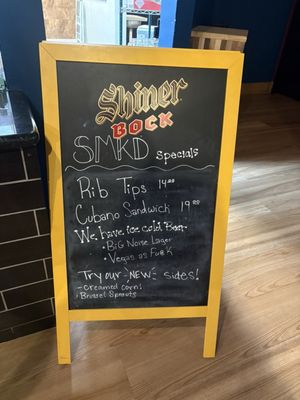 Shiner
BOCK
SMKD Specials
Rib Tips 14.00
Cubano Sandwich 19.00
We have ice cold Beer
• BIG Noise Lager
• Vegas as Fu@K
Try our NEW sides!
- creamed corn!
- Brussel Sprouts